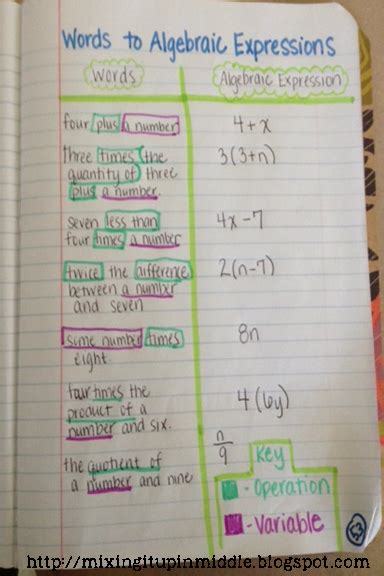 Words to Algebraic Expressions
Words
Algebraic Expression
four plus a number
4 + x
three times (the
quantity of) three
plus a number.
3(3+n)
seven less than
four times a number
4x - 7
twice the difference
between a number
and seven
2(n-7)
some number times
eight.
8n
four times the
product of a
number and six.
4(6y)
the quotient of
a number and nine
n/9
Key
- Operation
- Variable
53
http://mixingitupinmiddle.blogspot.com